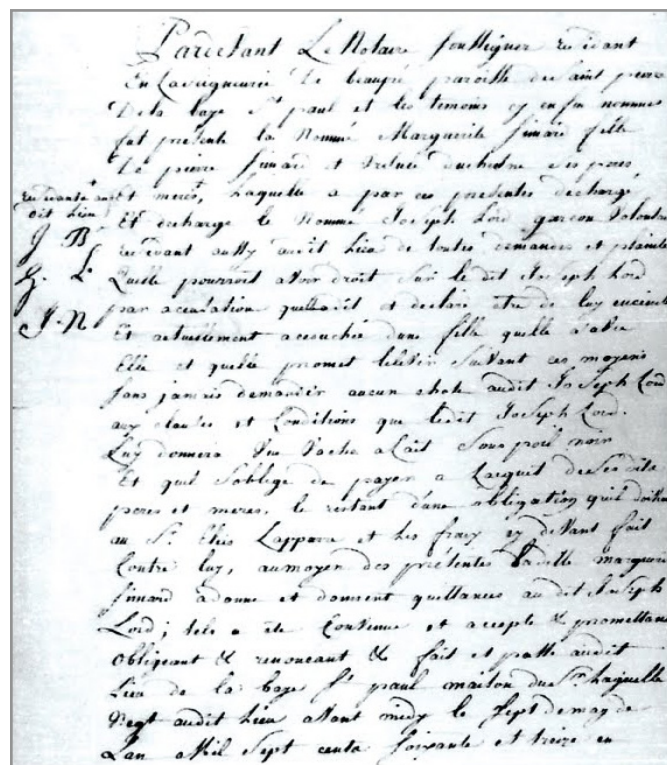 Pardevant Le Notaire soussigner residant
En La seigneurie de beaupré paroisse de saint pierre
De la baye St paul et les temoins cy enfin nommes
fut présente la Nommé Marguerite simard fille
De pierre simard et duchesne ses peres
residante aud
dit lieu
Et meres, Laquelle a par ces presentes dechargé
Et decharge le Nommé Joseph Lord garcon volontaire
J B
residant aussy audit Lieu de toutes demandes et plainte
g. L.
Quelle pourroit avoir droit sur le dit Joseph Lord
J. N
par acusation quelle dit et declare etre de luy enceinte
Et actuellement acouchée dune fille quelle a avec
Elle et quelle promet Lelever suivant ces moyens
sans jamais demander aucun chose audit Joseph Lord
aux clauses et Conditions que ledit Joseph Lord
Luy donnera Une Vache a Lait sous poil noir
Et quil soblige de payer a Lacquit de ses dits
peres et meres, le restant dune obligation quil doivent
au Sr. Elies Lappare et les fraix cy devant fait
Contre luy, au moyen des présentes Ladelle marguerite
simard a donne et donnent quittances audit Joseph
Lord; tels a été Convenue et accepte & promettant
obligeant & renoncant & fait et passé audit
Lieu de la baye St paul maison du Sr. Laquelle
audit Lieu avant midy le sept de may de
Lan Mil sept cents soixante et treize en